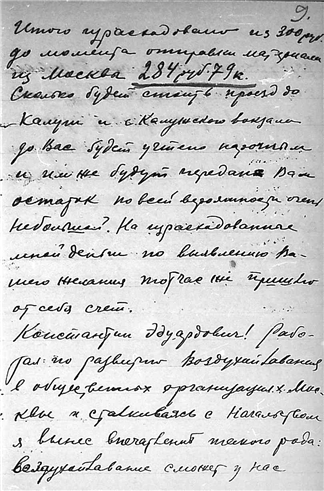 9.
Итого израсходовано из 300 руб.
до момента отправки материала
из Москвы 284 руб. 79 к.
Сколько будет стоить проезд до
Калуги и с Калужского вокзала
до Вас будет учтено нарочным
и им же будут передан Вам
остаток по всей вероятности очень
небольшой. На израсходованные
мной деньги по выявлению Ва-
шего желания тотчас же пришлю
от себя счет.
Константин Эдуардович! Рабо-
тая по развитию воздухоплавания
в общественных организациях Мос-
квы и сталкиваясь с Начальством
я вынес впечатление такого рода:
воздухоплавание сможет у нас